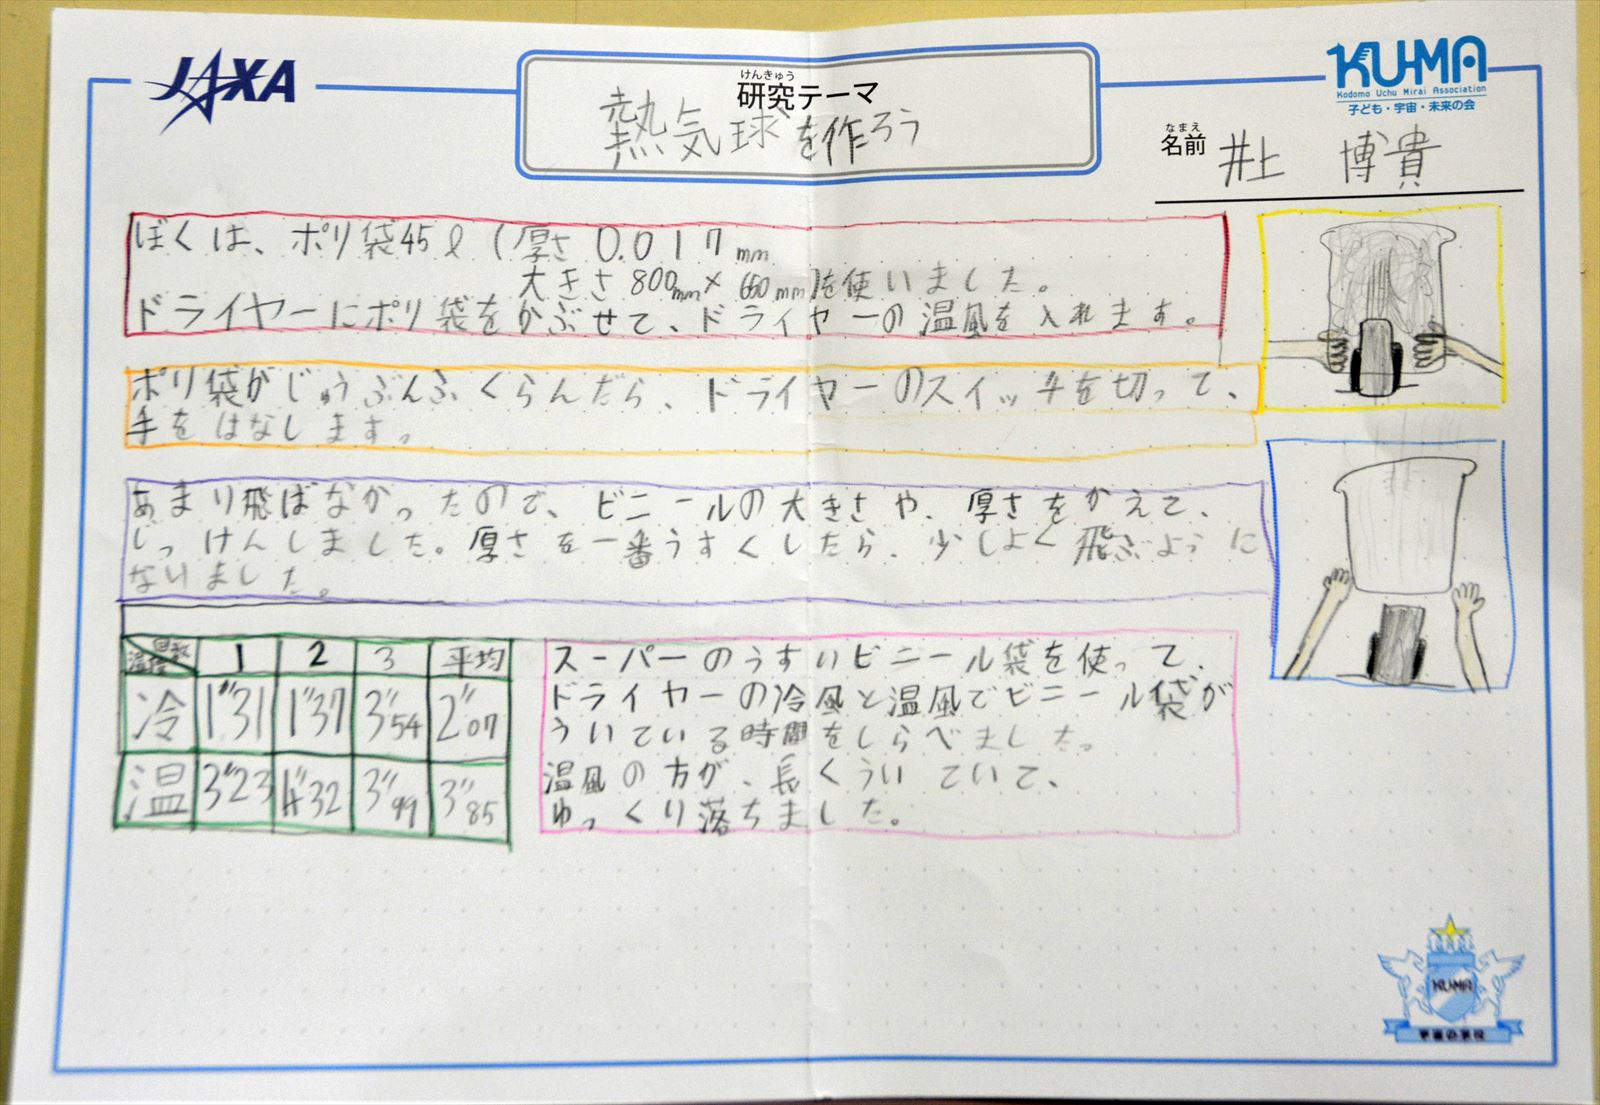 JAXA
けんきゅう
研究テーマ
熱気球を作ろう
KU-MA
Kodomo Uchu Mirai Association
子ども・宇宙・未来の会
なまえ
名前 井上 博貴
ぼくは、ポリ袋45ℓ(厚さ 0.017mm
大きさ 800mm×660mm)を使いました。
ドライヤーにポリ袋をかぶせて、ドライヤーの温風を入れます。
ポリ袋がじゅうぶんふくらんだら、ドライヤーのスイッチを切って、
手をはなします。
あまり飛ばなかったので、ビニールの大きさや、厚さをかえて、
じっけんしました。厚さを一番うすくしたら、少しよく飛ぶように
なりました。
回数 温度 1 2 3 平均
冷 1"31 1"37 3"54 2"07
温 3"23 4"32 3"99 3"85
スーパーのうすいビニール袋を使って、
ドライヤーの冷風と温風でビニール袋が
ういている時間をしらべました。
温風の方が、長くういていて、
ゆっくり落ちました。
KU-MA